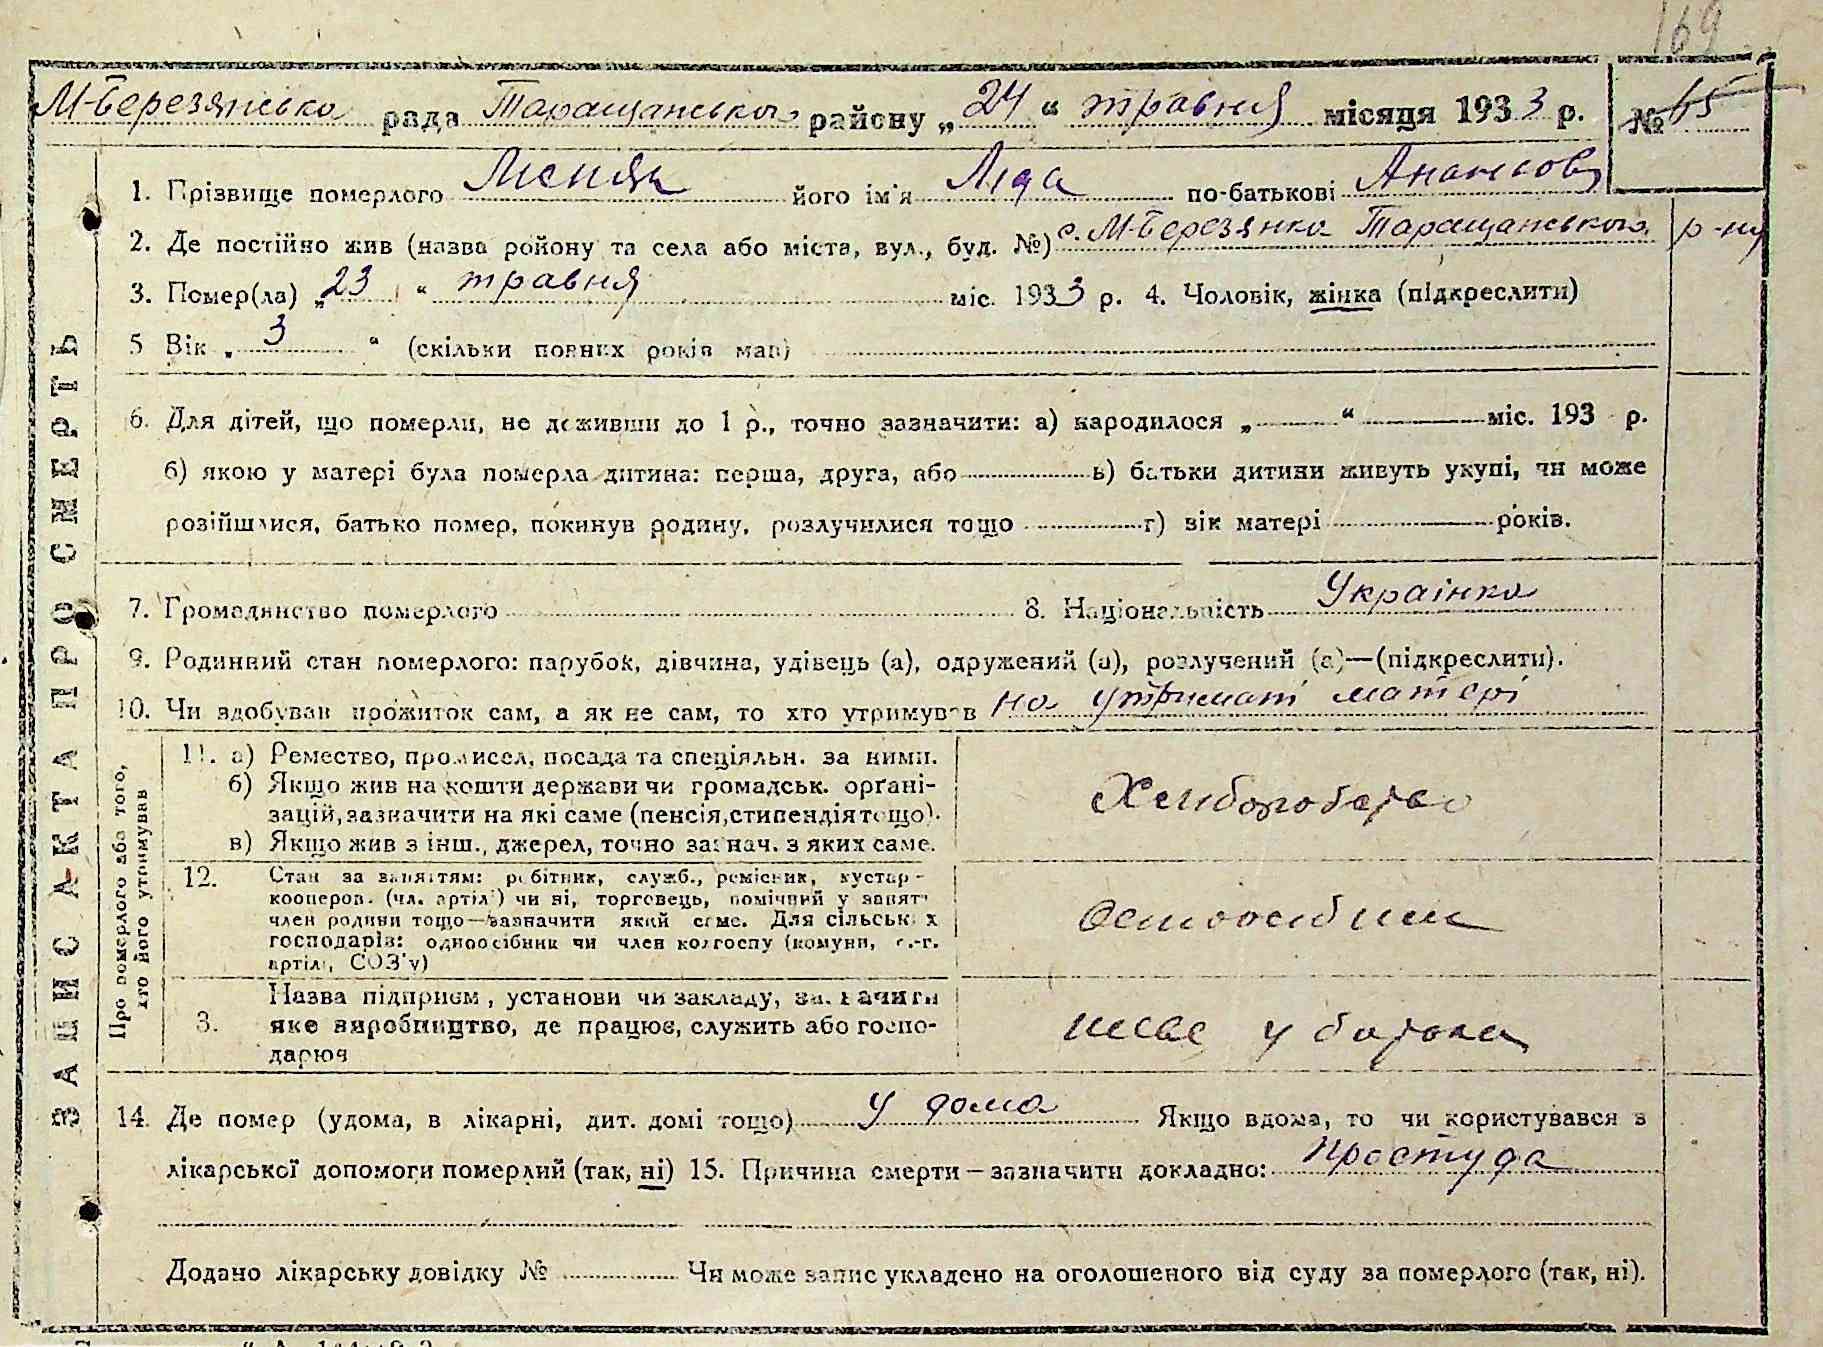 169
М-Березянська рада Таращанського району „24“ травня місяця 1933 р. № 65
1. Прізвище померлого його ім'я Ліда по-батькові
2. Де постійно жив (назва ройону та села або міста, вул., буд. №) с. М-Березянка Таращанського р-ну
3. Помер(ла) „23“ травня міс. 1933 р. 4. Чоловік, жінка (підкреслити)
5 Вік „3“ (скільки повних років мав)
6. Для дітей, що померли, не доживши до 1 р., точно зазначити: а) народилося „ “ міс. 193 р.
б) якою у матері була померла дитина: перша, друга, або в) батьки дитини живуть укупі, чи може
розійшлися, батько помер, покинув родину, розлучилися тощо г) вік матері років.
7. Громадянство померлого 8. Національність Українка
9. Родинний стан померлого: парубок, дівчина, удівець (а), одружений (а), розлучений (а)—(підкреслити).
10. Чи здобував прожиток сам, а як не сам, то хто утримував на утримані матері
ЗАПИС АКТА ПРО СМЕРТЬ
Про померлого або того, хто його утримував
11. а) Ремество, промисел, посада та спеціяльн. за ними.
б) Якщо жив на кошти держави чи громадськ. орґані-
зацій, зазначити на які саме (пенсія, стипендія тощо).
в) Якщо жив з інш., джерел, точно зазнач. з яких саме.
Хліборобство
12. Стан за заняттям: робітник, служб., ремісник, кустар-
кооперов. (чл. артілі) чи ні, торговець, помічний у занятт
член родини тощо—зазначити який саме. Для сільських
господарів: одноосібник чи член колгоспу (комуни, с.-г.
артілі, СОЗ'у)
3. Назва підприєм, установи чи закладу, зазначити
яке виробництво, де працює, служить або госпо-
дарює
у батька
14. Де помер (удома, в лікарні, дит. домі тощо) у дома Якщо вдома, то чи користувався з
лікарської допомоги померлий (так, ні) 15. Причина смерти—зазначити докладно: простуда
Додано лікарську довідку № Чи може запис укладено на оголошеного від суду за померлого (так, ні).